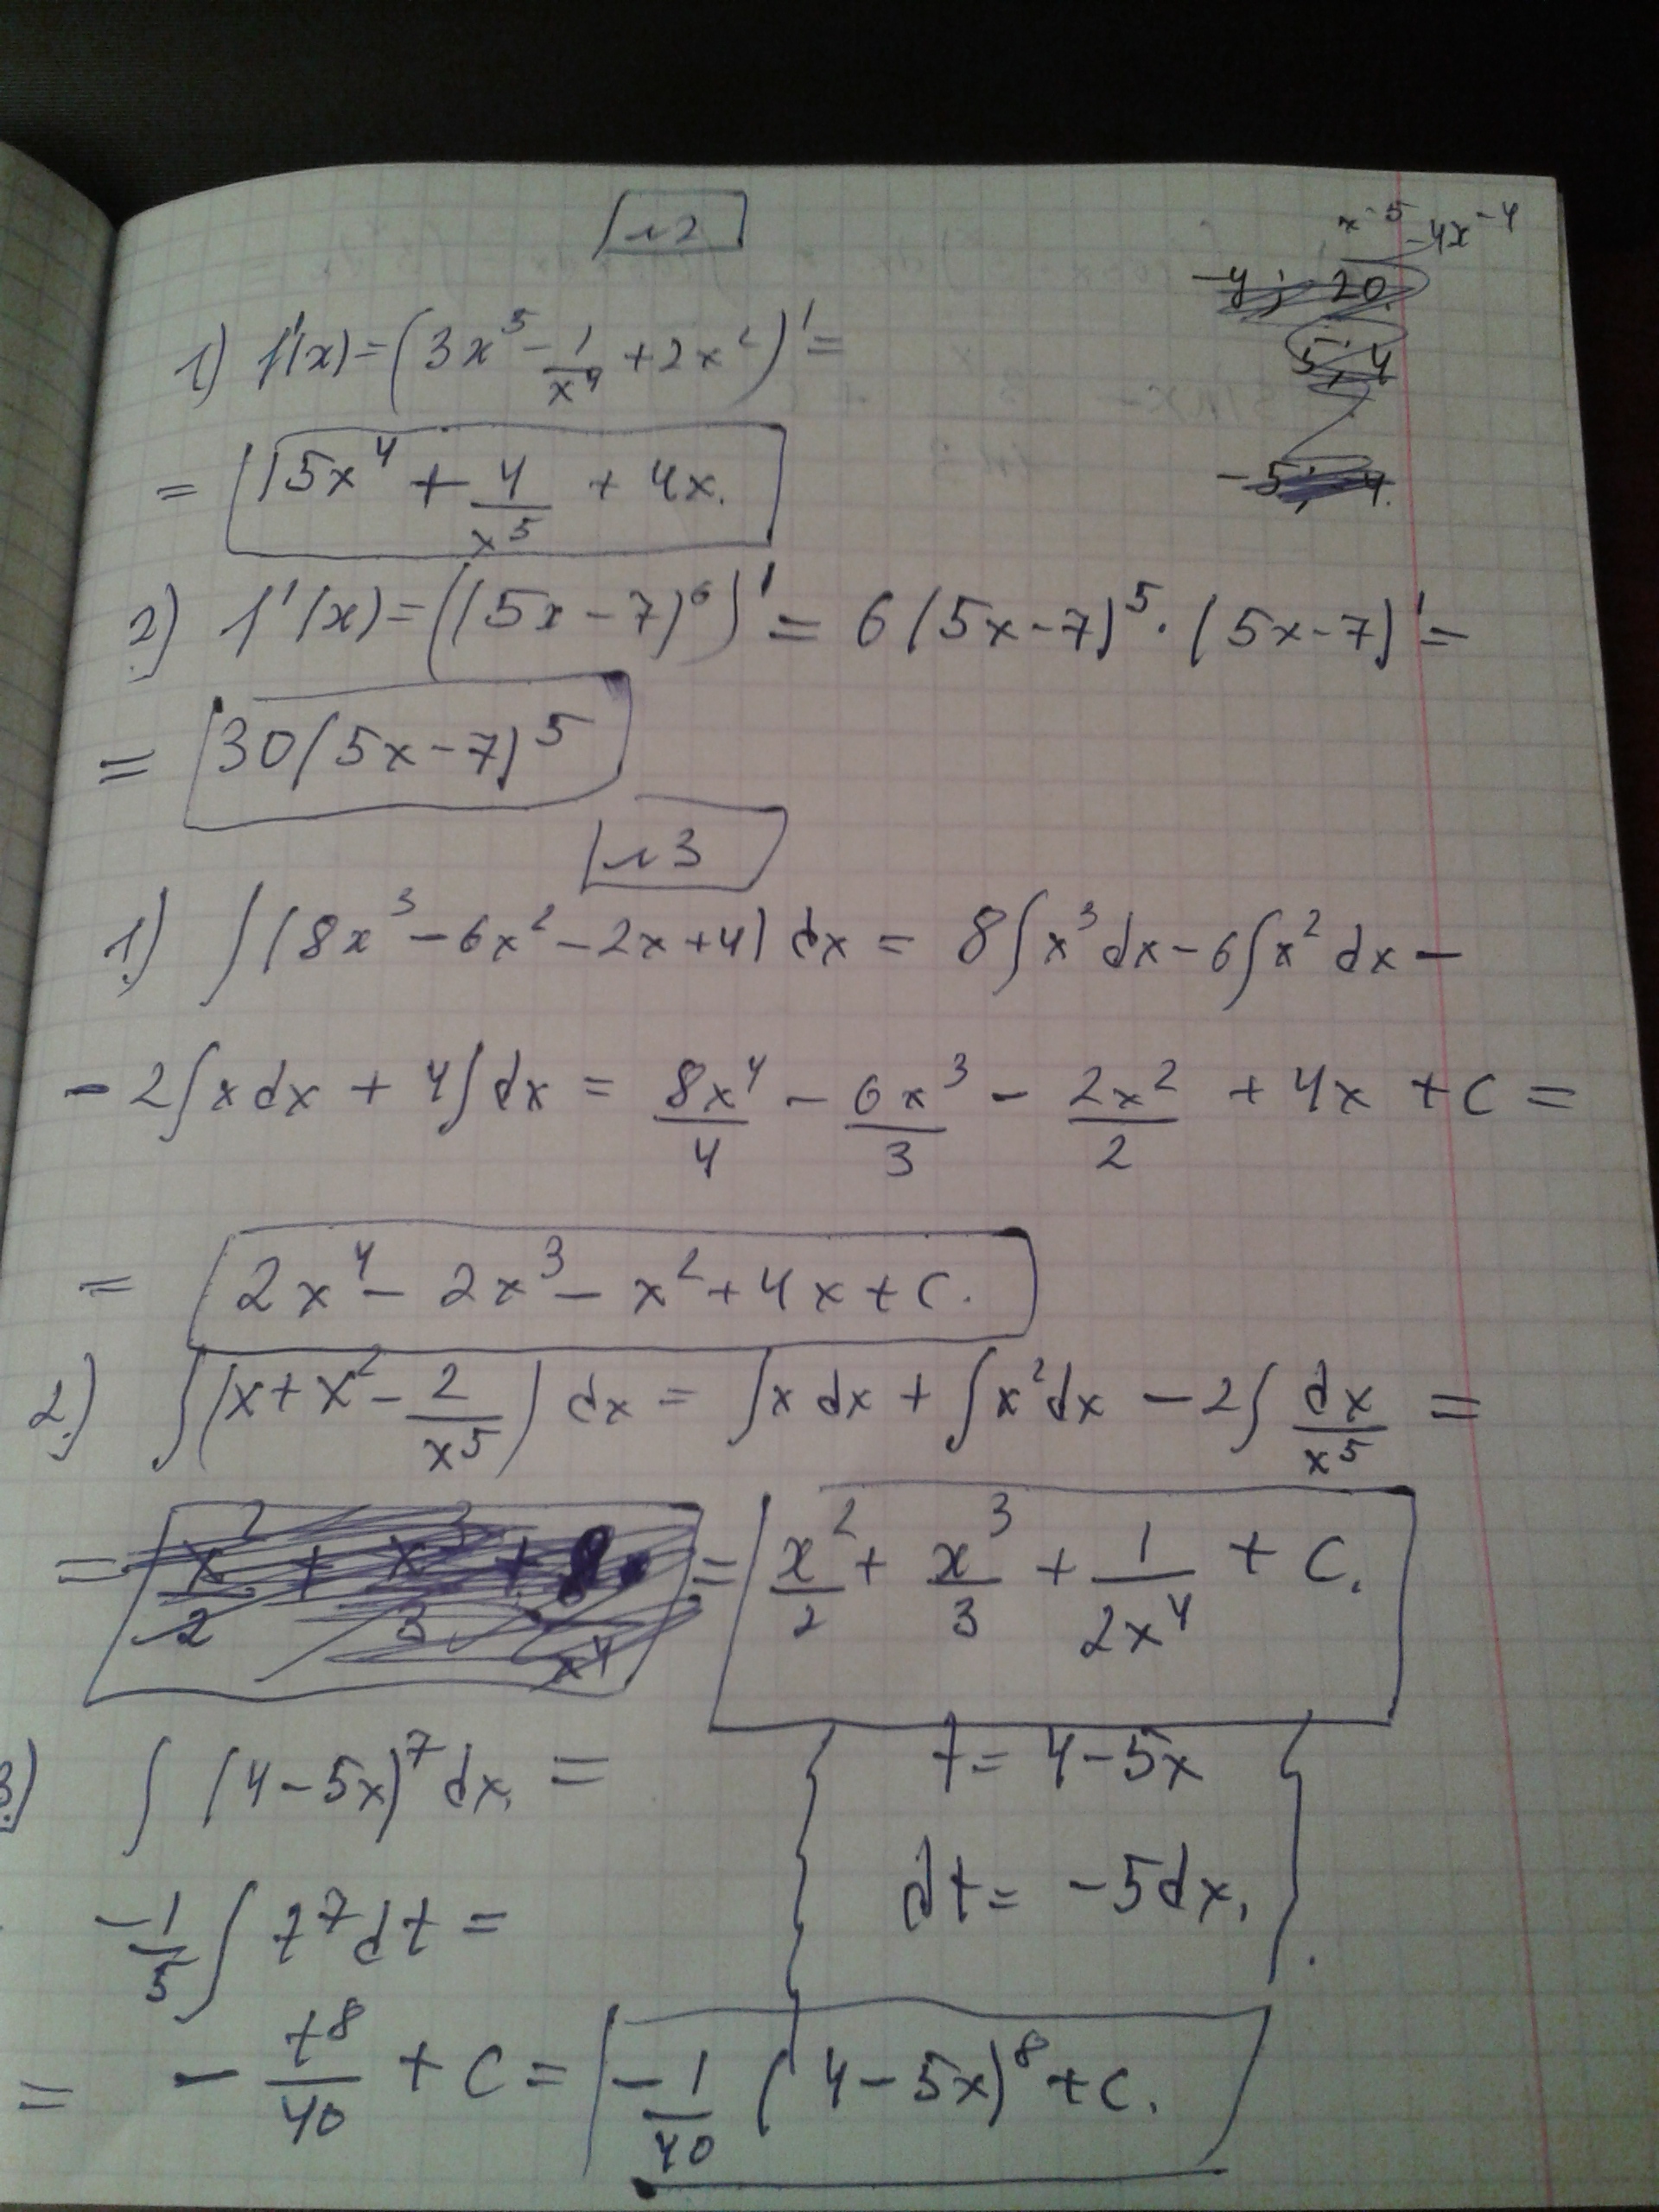 №2
x^-5 -4x^-4
-4; 20.
5; 4
-5; 4.
1) f'(x)=(3x^5 - 1/x^4 + 2x^2)' =
= 15x^4 + 4/x^5 + 4x.
2) f'(x)=((5x-7)^6)' = 6(5x-7)^5 · (5x-7)' =
= 30(5x-7)^5
№3
1.) ∫(8x^3 - 6x^2 - 2x + 4) dx = 8∫x^3 dx - 6∫x^2 dx -
- 2∫x dx + 4∫dx = 8x^4/4 - 6x^3/3 - 2x^2/2 + 4x + C =
= 2x^4 - 2x^3 - x^2 + 4x + C.
2.) ∫(x + x^2 - 2/x^5) dx = ∫x dx + ∫x^2 dx - 2∫dx/x^5 =
= = x^2/2 + x^3/3 + 1/2x^4 + C.
3.) ∫(4-5x)^7 dx. = { t = 4-5x
dt = -5dx. }.
-1/5 ∫t^7 dt =
= - t^8/40 + C = -1/40 (4-5x)^8 + C.